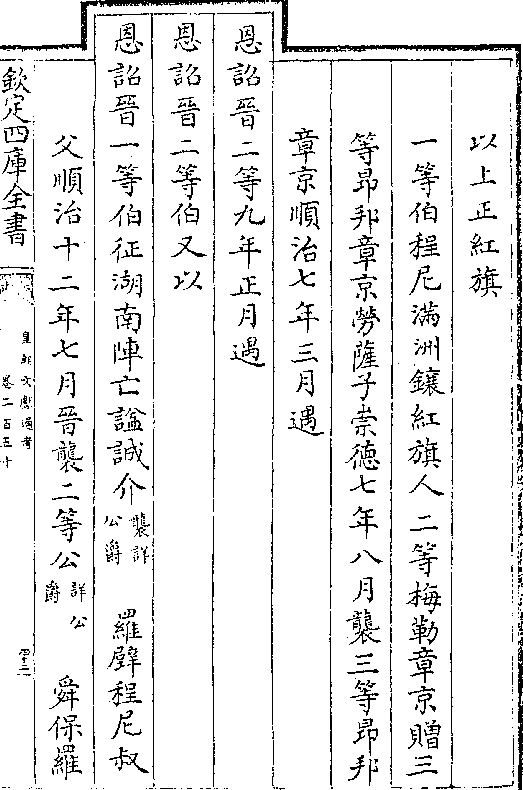 以上正紅旗
一等伯程尼滿洲鑲紅旗人二等梅勒章京贈三
等昂邦章京勞薩子崇德七年八月襲三等昂邦
章京順治七年三月遇
恩詔晉二等九年正月遇
恩詔晉二等伯又以
恩詔晉一等伯征湖南陣亡諡誠介襲詳公爵 羅璧程尼叔
父順治十二年七月晉襲二等公詳公爵 舜保羅
欽定四庫全書
皇朝文獻通考
卷二百五十